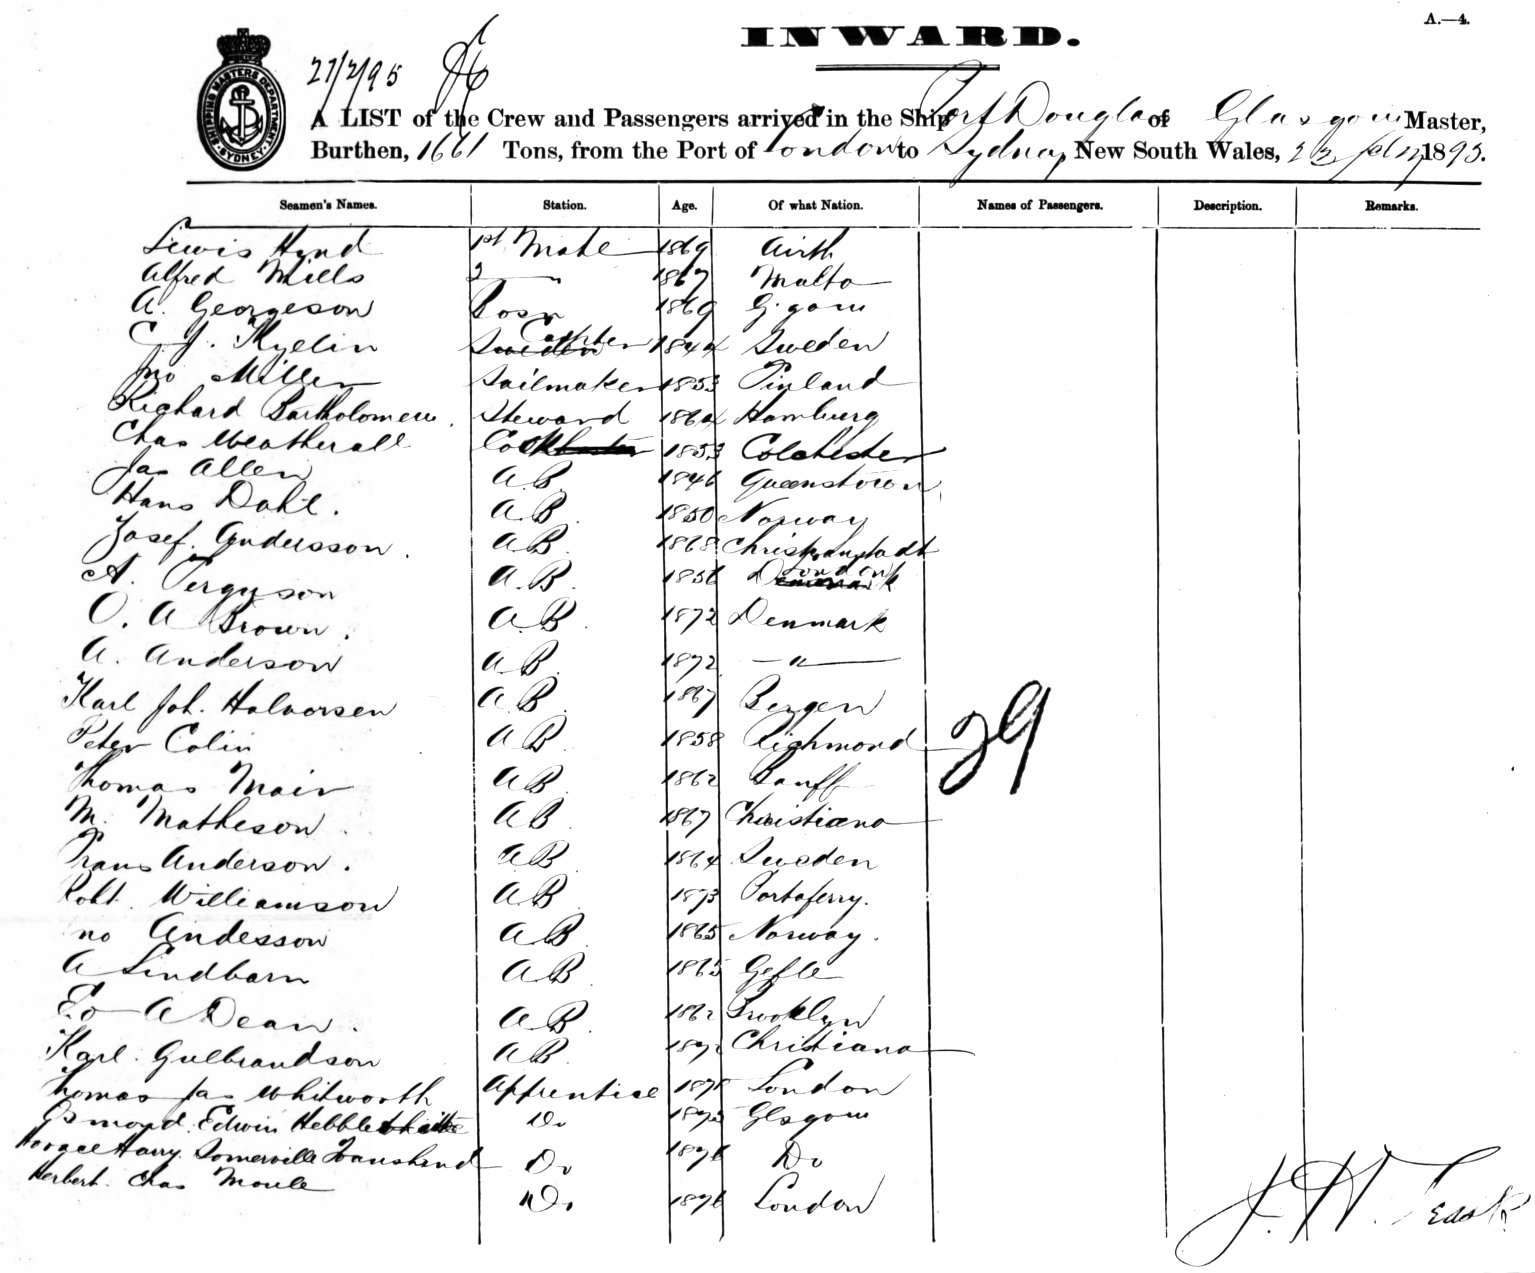 A.—4.
INWARD.
SHIPPING MASTERS DEPARTMENT SYDNEY
27/2/95
A LIST of the Crew and Passengers arrived in the Ship Port Douglas of Glasgow Master,
Burthen, 1661 Tons, from the Port of London to Sydney New South Wales, 23 1895.
Seamen's Names. Station. Age. Of what Nation. Names of Passengers. Description. Remarks.
Lewis Hynd 1st Mate 1869 Airth
Alfred Mills 2 — " 1867 Malta
A. Georgeson Bosn 1869 G. gow
C J. Kyelin Sweden Carpter 1844 Sweden
Jno Miller Sailmaker 1853 Finland
Richard Bartholomew. Steward 1864 Hamburg
Chas Weatherall Cook 1853 Colchester
Jas Allen A.B. 1846 Queenstown
Hans Dahl. A.B. 1850 Norway
Josef. Andersson. A.B. 1868 Christianstadt
A. Ferguson A.B. 1856 Denmark London
O. A Brown. A.B. 1872 Denmark
A. Anderson A.B. 1872 — " —
Karl Joh. Halvorsen A.B. 1867 Bergen
Peter Colin A.B. 1858 Richmond
Thomas Mair A.B. 1862 Banff
M. Matheson A.B. 1867 Christiana
Frans Anderson. A.B. 1864 Sweden
Robt. Williamson A.B. 1873 Portaferry.
no Andesson A.B. 1865 Norway.
A Lindbarn A.B. 1865 Gefle
A Dean. A.B. 1862 Brooklyn
Karl Gulbrandson A.B. 1872 Christiana
Thomas Jas Whitworth Apprentice London
Osmond Edwin Hebblethwaite Do Glsgow
Horace Harry Somerville Townshend Do 1876 Do
Herbert Chas Moule Do 1876 London
29
J. H. Teask